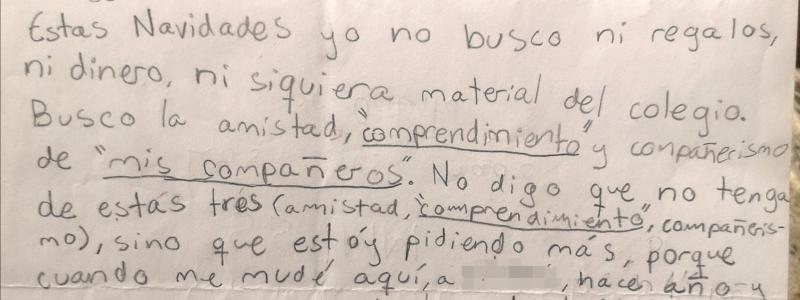 Estas Navidades yo no busco ni regalos,
ni dinero, ni siquiera material del colegio.
Busco la amistad, "comprendimiento" y conpañerismo
de "mis compañeros". No digo que no tenga
de estas tres (amistad, "comprendimiento", compañeris-
mo), sino que estóy pidiendo más, porque
cuando me mudé aquí, a , hace año y